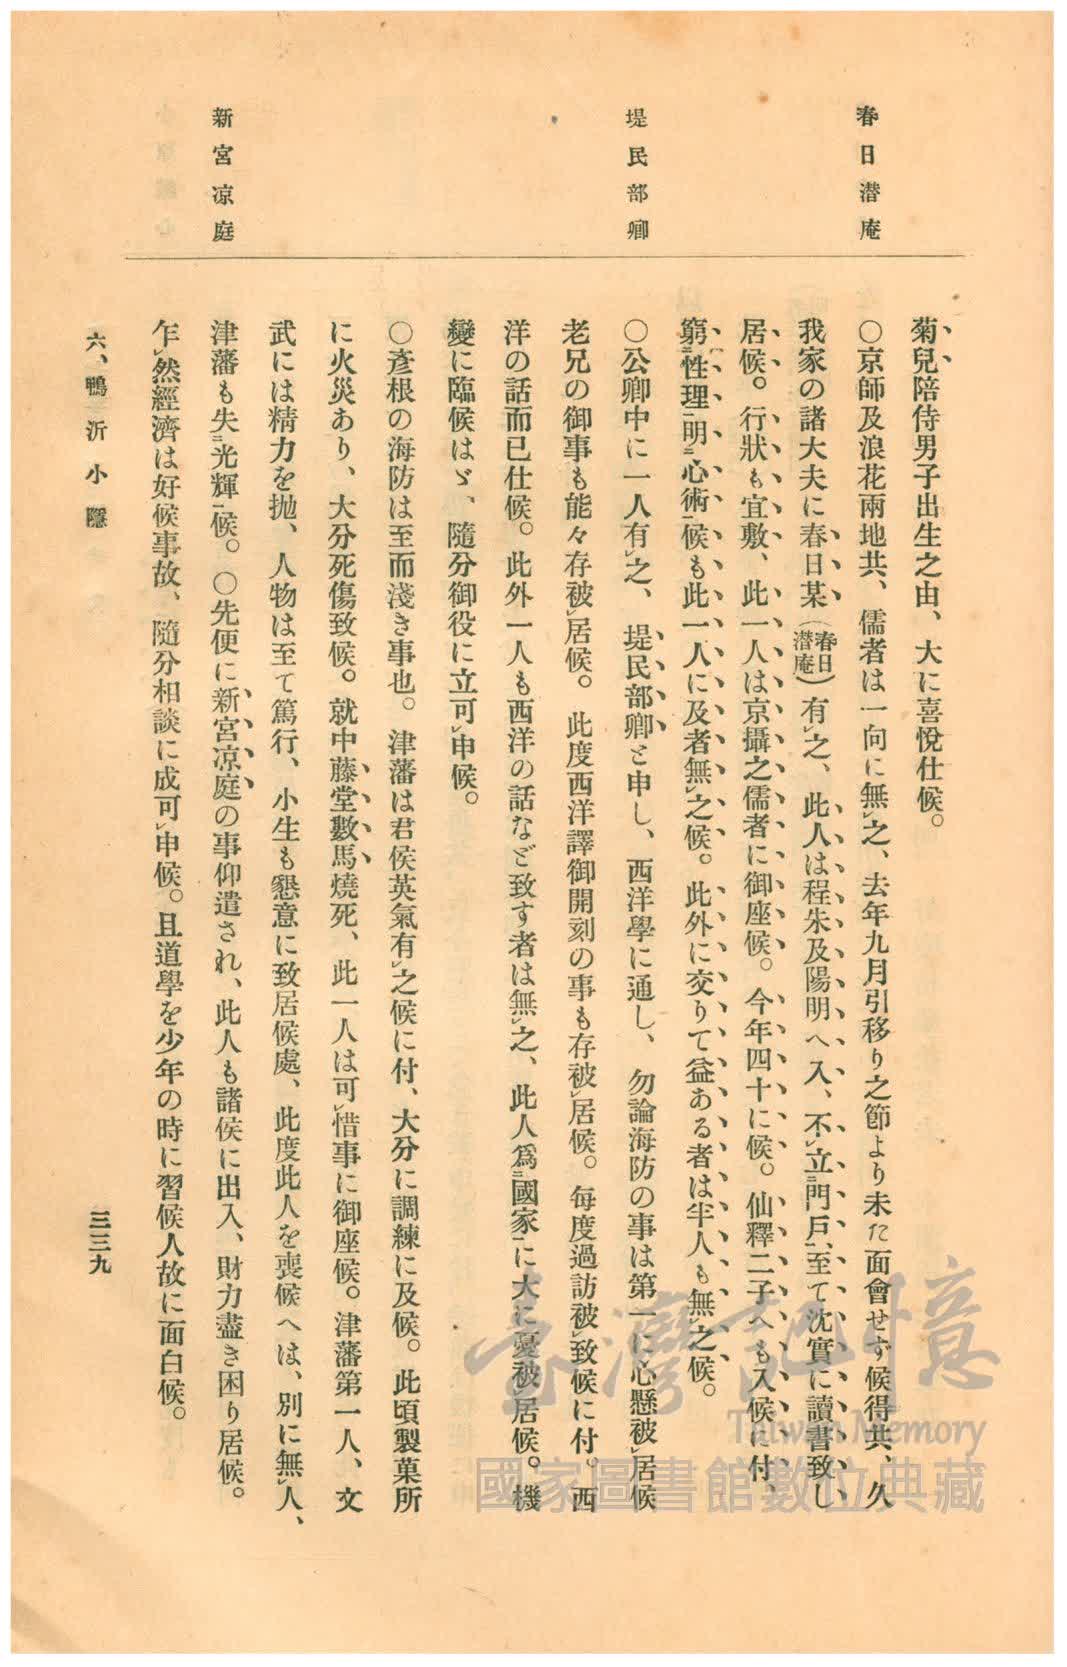 春日潜庵
堤民部卿
新宮凉庭
菊兒陪侍男子出生之由、大に喜悅仕候。
○京師及浪花兩地共、儒者は一向に無㆑之、去年九月引移り之節より未だ面會せず候得共、久
我家の諸大夫に春日某（春日潜庵）有㆑之、此人は程朱及陽明へ入、不㆑立㆓門戶㆒、至て沈實に讀書致し
居候。行狀も宜敷、此一人は京攝之儒者に御座候。今年四十に候。仙釋二子へも入候に付、
窮㆓性理㆒明㆓心術㆒候も此一人に及者無㆑之候。此外に交りて益ある者は半人も無㆑之候。
○公卿中に一人有㆑之、堤民部卿と申し、西洋學に通し、勿論海防の事は第一に心懸被㆑居候
老兄の御事も能々存被㆑居候。此度西洋譯御開刻の事も存被㆑居候。每度過訪被㆑致候に付。西
洋の話而已仕候。此外一人も西洋の話など致す者は無㆑之、此人爲㆓國家㆒に大に憂被㆑居候。機
變に臨候はゞ、隨分御役に立可㆑申候。
○彥根の海防は至而淺き事也。津藩は君侯英氣有㆑之候に付、大分に調練に及候。此頃製菓所
に火災あり、大分死傷致候。就中藤堂數馬燒死、此一人は可㆑惜事に御座候。津藩第一人、文
武には精力を拋、人物は至て篤行、小生も懇意に致居候處、此度此人を喪候へは、別に無㆑人、
津藩も失㆓光輝㆒候。○先便に新宮凉庭の事仰遣され、此人も諸侯に出入、財力盡き困り居候。
乍㆑然經濟は好候事故、隨分相談に成可㆑申候。且道學を少年の時に習候人故に面白候。
六、鴨沂小隱
三三九
臺灣記憶
Taiwan Memory
國家圖書館數位典藏